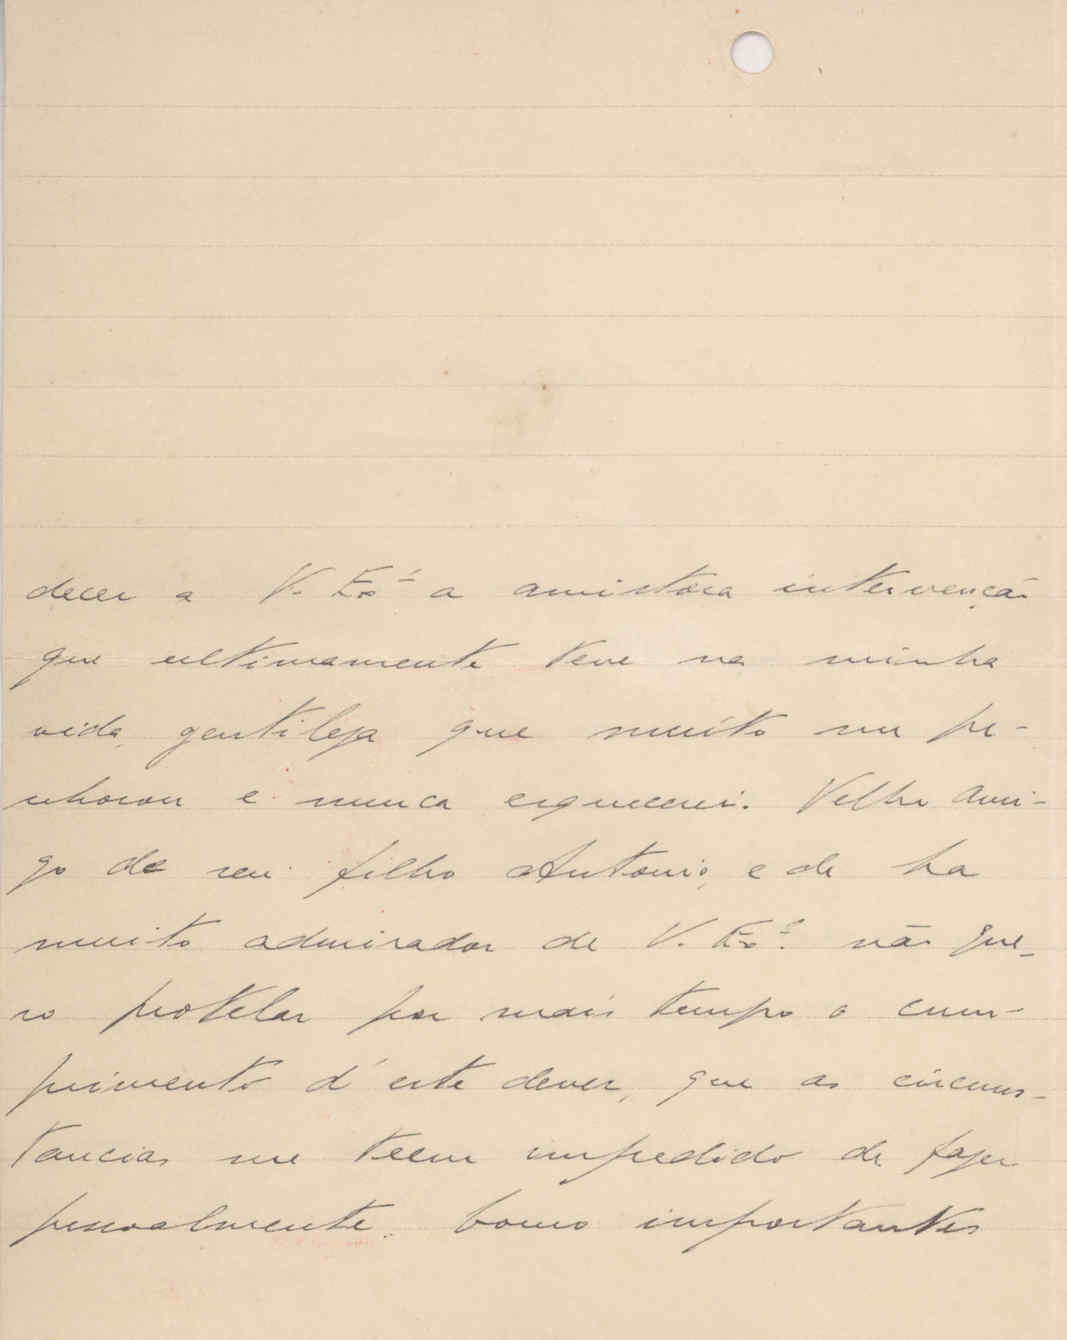 decer a V. Exª a amistosa intervenção
que ultimamente teve na minha
vida, gentileza que muito me pe-
nhorou e nunca esquecerei. Velho ami-
go de seu filho Antonio, e de ha
muito admirador de V. Exª. não que-
ro protelar por mais tempo o cum-
primento d'este dever, que as circums-
tancias me teem impedido de fazer
pessoalmente. Como importantes